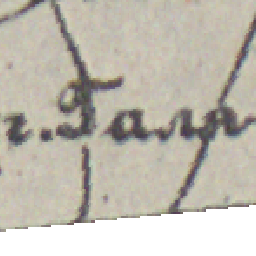 г. Галя